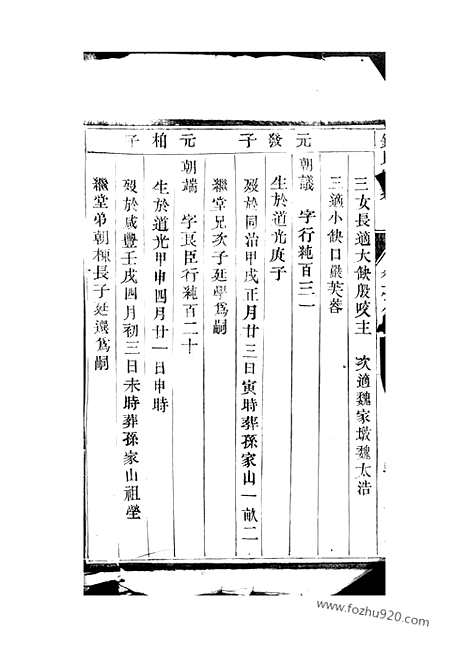 三女長適大缺殷咬主　次適魏家墩魏太浩
三適小缺口嚴芙蓉
元　發　子
朝議　字行純百三一
生於道光庚子
歿於同治甲戌正月廿三日寅時葬孫家山一畝二
繼堂兄次子延學爲嗣
元　柏　子
朝端　字良臣行純百二十
生於道光甲申四月廿一日申時
歿於咸豐壬戌四月初三日未時葬孫家山祖塋
繼堂弟朝棟長子延選爲嗣
www.fozhu920.com